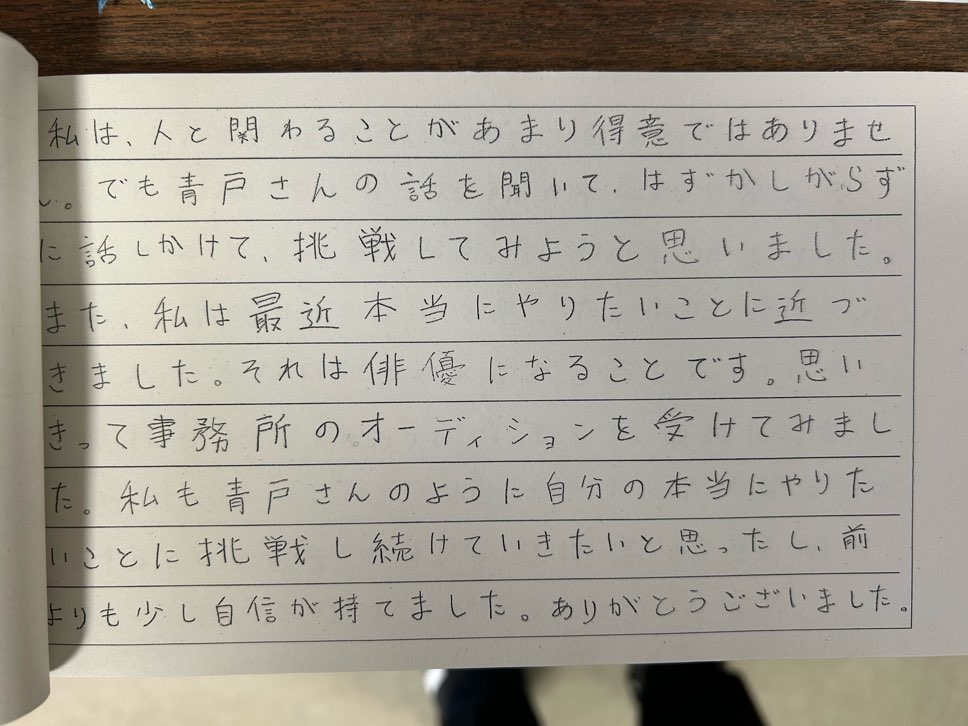 私は、人と関わることがあまり得意ではありませ
ん。でも青戸さんの話を聞いて、はずかしがらず
に話しかけて、挑戦してみようと思いました。
また、私は最近本当にやりたいことに近づ
きました。それは俳優になることです。思い
きって事務所のオーディションを受けてみまし
た。私も青戸さんのように自分の本当にやりた
いことに挑戦し続けていきたいと思ったし、前
よりも少し自信が持てました。ありがとうございました。